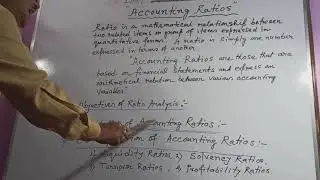 "Accounting Ratios"
Ratio is a mathematical relationship between
two related items or group of items expressed in
quantitative forms. A ratio is simply one number
expressed in terms of another
"Accounting Ratios are those that are
based on financial statements and express an
arithmetical relation between various accounting
variables.
Objectives of Ratio Analysis:-
of Accounting Ratios:-
of Accounting Ratios:-
1) Liquidity Ratios 2) Solvency Ratios.
3) Turnover Ratios, 4) Profitability Ratios